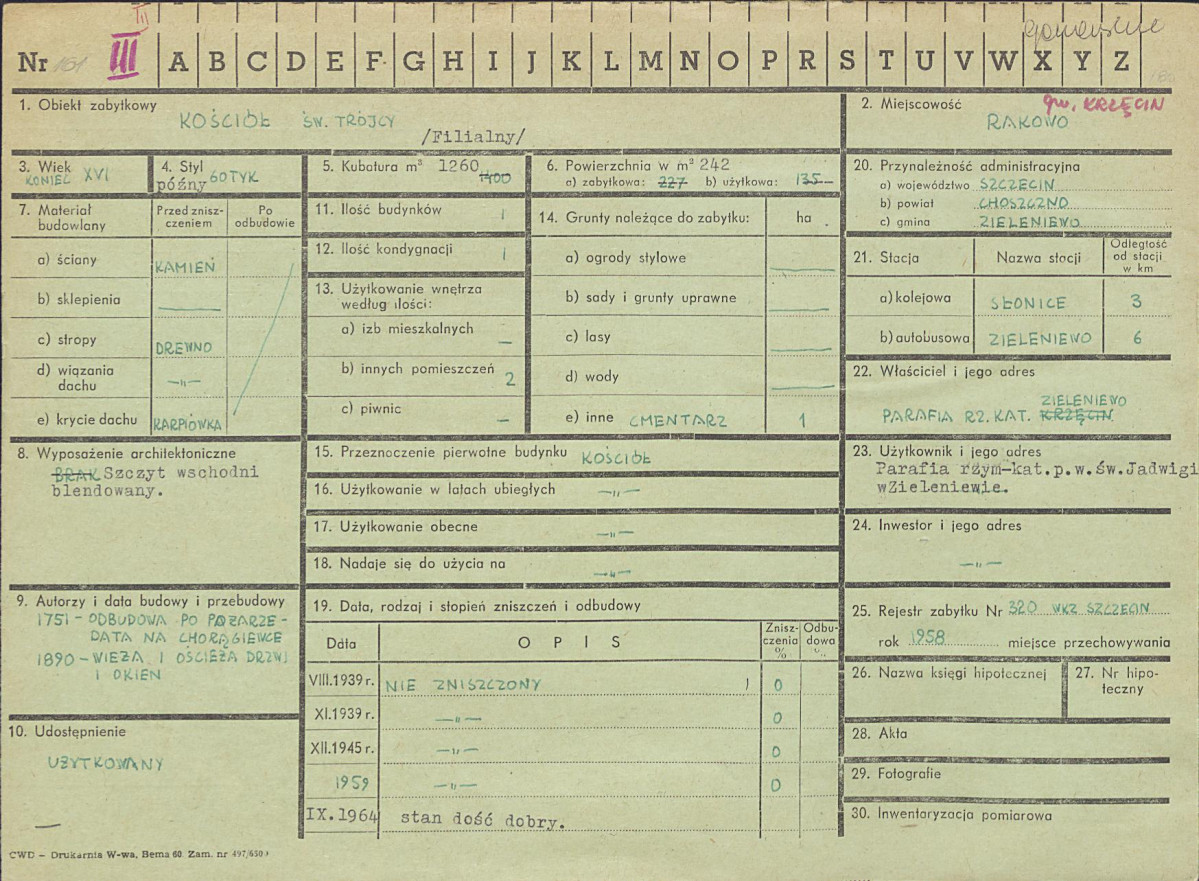 III
Nr 161 III A B C D E F G H I J K L M N O P R S T U V W X Y Z
1. Obiekt zabytkowy
KOŚCIÓŁ ŚW. TRÓJCY
/Filialny/
2. Miejscowość
gm. KRZĘCIN
RAKOWO
3. Wiek
KONIEC XVI
4. Styl
późny GOTYK
5. Kubatura m³ 1260 1400
6. Powierzchnia w m² 242
a) zabytkowa: 227 b) użytkowa: 135
7. Materiał budowlany
Przed zniszczeniem
Po odbudowie
a) ściany KAMIEŃ
b) sklepienia —
c) stropy DREWNO
d) wiązania dachu —„—
e) krycie dachu KARPIÓWKA
8. Wyposażenie architektoniczne
BRAK Szczyt wschodni
blendowany.
9. Autorzy i data budowy i przebudowy
1751 - ODBUDOWA PO POŻARZE -
DATA NA CHORĄGIEWCE
1890 - WIEŻA I OŚCIEŻA DRZWI
I OKIEN
10. Udostępnienie
UŻYTKOWANY
—
11. Ilość budynków 1
12. Ilość kondygnacji 1
13. Użytkowanie wnętrza
według ilości:
a) izb mieszkalnych —
b) innych pomieszczeń 2
c) piwnic —
14. Grunty należące do zabytku: ha
a) ogrody stylowe —
b) sady i grunty uprawne —
c) lasy —
d) wody —
e) inne CMENTARZ 1
15. Przeznaczenie pierwotne budynku KOŚCIÓŁ
16. Użytkowanie w latach ubiegłych —„—
17. Użytkowanie obecne —„—
18. Nadaje się do użycia na —„—
19. Data, rodzaj i stopień zniszczeń i odbudowy
Data O P I S Zniszczenia % Odbudowa %
VIII.1939 r. NIE ZNISZCZONY 0
XI.1939 r. —„— 0
XII.1945 r. —„— 0
1959 —„— 0
IX.1964 stan dość dobry.
20. Przynależność administracyjna
a) województwo SZCZECIN
b) powiat CHOSZCZNO
c) gmina ZIELENIEWO
21. Stacja Nazwa stacji Odległość od stacji w km
a) kolejowa SŁONICE 3
b) autobusowa ZIELENIEWO 6
22. Właściciel i jego adres
ZIELENIEWO
PARAFIA RZ. KAT. KRZĘCIN
23. Użytkownik i jego adres
Parafia rzym-kat.p.w.św.Jadwigi
wZieleniewie.
24. Inwestor i jego adres
—„—
25. Rejestr zabytku Nr 320 WKZ SZCZECIN
rok 1958 miejsce przechowywania
26. Nazwa księgi hipotecznej
27. Nr hipoteczny
28. Akta
29. Fotografie
30. Inwentaryzacja pomiarowa
CWD – Drukarnia W-wa, Bema 60. Zam. nr 497/650